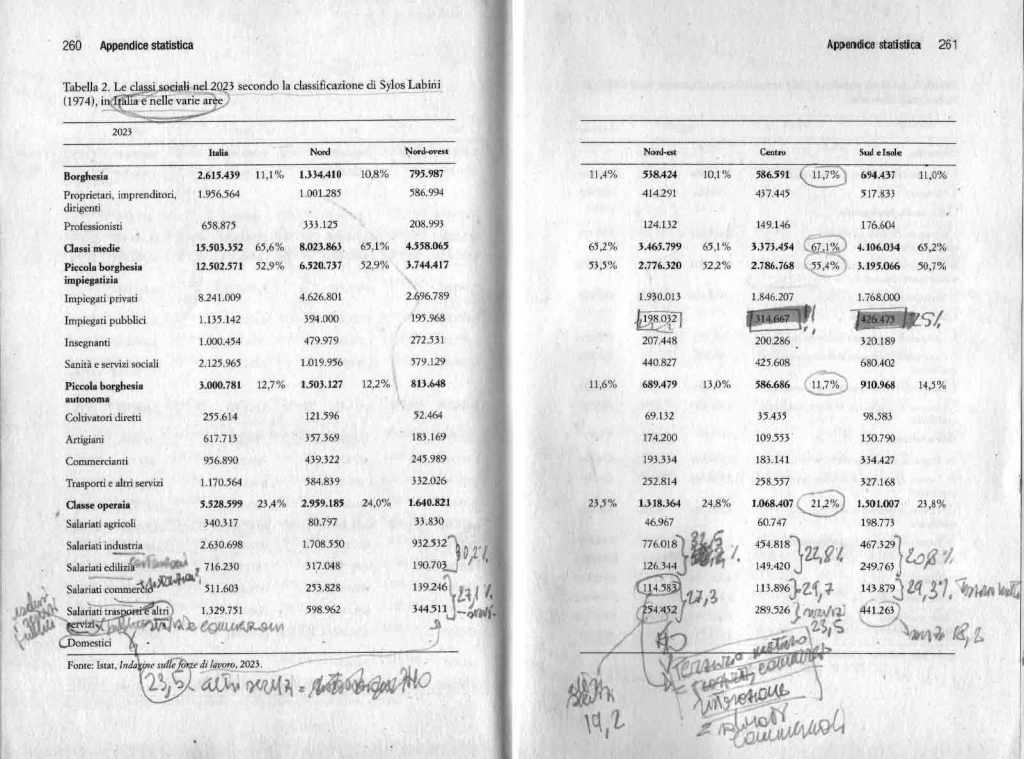 260 Appendice statistica
Tabella 2. Le classi sociali nel 2023 secondo la classificazione di Sylos Labini
(1974), in Italia e nelle varie aree
2023
Italia Nord Nord-ovest
Borghesia 2.615.439 11,1% 1.334.410 10,8% 795.987
Proprietari, imprenditori, 1.956.564 1.001.285 586.994
dirigenti
Professionisti 658.875 333.125 208.993
Classi medie 15.503.352 65,6% 8.023.863 65,1% 4.558.065
Piccola borghesia 12.502.571 52,9% 6.520.737 52,9% 3.744.417
impiegatizia
Impiegati privati 8.241.009 4.626.801 2.696.789
Impiegati pubblici 1.135.142 394.000 195.968
Insegnanti 1.000.454 479.979 272.531
Sanità e servizi sociali 2.125.965 1.019.956 579.129
Piccola borghesia 3.000.781 12,7% 1.503.127 12,2% 813.648
autonoma
Coltivatori diretti 255.614 121.596 52.464
Artigiani 617.713 357.369 183.169
Commercianti 956.890 439.322 245.989
Trasporti e altri servizi 1.170.564 584.839 332.026
Classe operaia 5.528.599 23,4% 2.959.185 24,0% 1.640.821
Salariati agricoli 340.317 80.797 33.830
Salariati industria 2.630.698 1.708.550 932.532
Salariati edilizia 716.230 317.048 190.703
Salariati commercio 511.603 253.828 139.246
27,1%
Salariati trasporti e altri 1.329.751 598.962 344.511
servizi
Domestici
Fonte: Istat, Indagine sulle forze di lavoro, 2023.
23,5 altri servizi =
Appendice statistica 261
Nord-est Centro Sud e Isole
11,4% 538.424 10,1% 586.591 11,7% 694.437 11,0%
414.291 437.445 517.833
124.132 149.146 176.604
65,2% 3.465.799 65,1% 3.373.454 67,1% 4.106.034 65,2%
53,5% 2.776.320 52,2% 2.786.768 55,4% 3.195.066 50,7%
1.930.013 1.846.207 1.768.000
198.032 314.667 !! 426.475 25%
207.448 200.286 320.189
440.827 425.608 680.402
11,6% 689.479 13,0% 586.686 11,7% 910.968 14,5%
69.132 35.435 98.583
174.200 109.553 150.790
193.334 183.141 334.427
252.814 258.557 327.168
23,5% 1.318.364 24,8% 1.068.407 21,2% 1.501.007 23,8%
46.967 60.747 198.773
776.018 454.818 22,8% 467.329 20,8%
126.344 149.420 249.763
114.583 27,3 113.896 29,7 143.879 29,3%
254.452 289.526 servizi 441.263
23,5 18,2
19,2